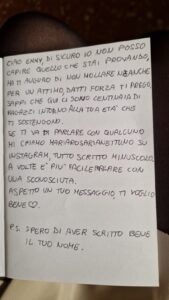 CIAO EMMY DI SICURO IO NON POSSO
CAPIRE QUELLO CHE STAI PROVANDO,
MA TI AUGURO DI NON MOLLARE NEANCHE
PER UN ATTIMO, DATTI FORZA TI PREGO,
SAPPI CHE QUI CI SONO CENTINAIA DI
RAGAZZI INTORNO ALLA TUA ETÀ CHE
TI SOSTENGONO.
SE TI VA DI PARLARE CON QUALCUNO
MI CHIAMO SU
INSTAGRAM, TUTTO SCRITTO MINUSCOLO,
A VOLTE E' PIU' FACILE PARLARE CON
UNA SCONOSCIUTA.
ASPETTO UN TUO MESSAGGIO, TI VOGLIO
BENE
P.S. SPERO DI AVER SCRITTO BENE
IL TUO NOME.